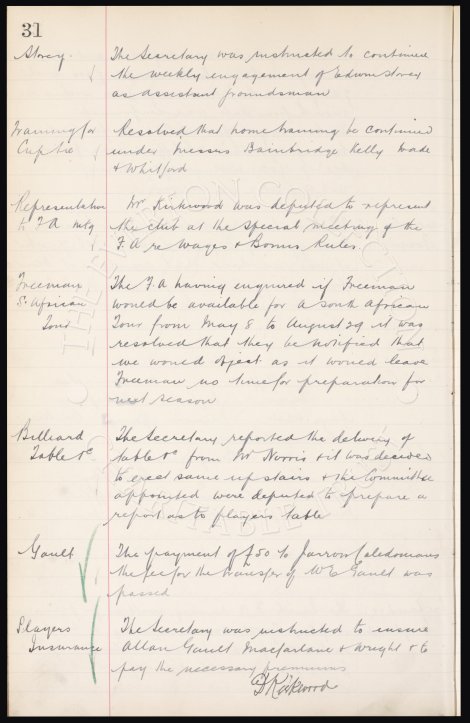 31
Storey. The Secretary was instructed to continue
the weekly engagement of Edwin Storey
as assistant groundsman
Training for Resolved that home training be continued
Cup tie under Messrs Bainbridge Kelly Wade
& Whitford
Representation Mr Kirkwood was deputed to represent
to F A mtg the club at the special meeting of the
F.A re Wages & Bonus Rules.
Freeman The F A having enquired if Freeman
S. African would be available for a South African
Tour Tour from May 8 to August 29 it was
resolved that they be notified that
we would object as it would leave
Freeman no time for preparation for
next season
Billiard The Secretary reported the delivery of
Table &c table &c from Mr Norris & it was decided
to erect same upstairs & the Committee
appointed were deputed to prepare a
report as to players table
Gault The payment of £50 to Jarrow Caledonians
the fee for the transfer of W E Gault was
passed
Players The Secretary was instructed to insure
Insurance Allan Gault Macfarlane & Wright & to
pay the necessary premiums
Kirkwood